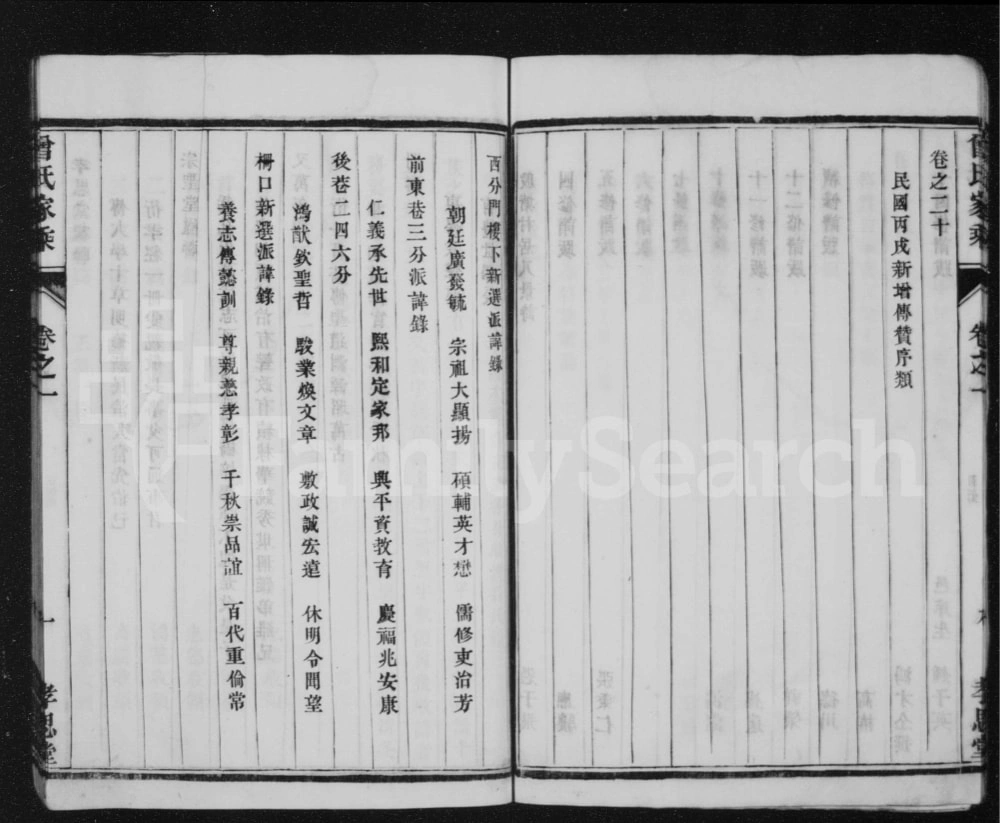 卷之二十
民國丙戌新增傳贊序類
百分門樓下新選派諱錄
朝廷廣發毓 宗祖大顯揚 碩輔英才懋 儒修吏治芳
前東巷三分派諱錄
仁義承先世 熙和定家邦 興平資教育 慶福兆安康
後巷二四六分
鴻猷欽聖哲 駿業煥文章 敷政誠宏遠 休明令聞望
柵口新選派諱錄
養志傳懿訓 尊親慈孝彰 千秋崇品誼 百代重倫常
曾氏家乘 卷之一 一 孝思堂
FamilySearch